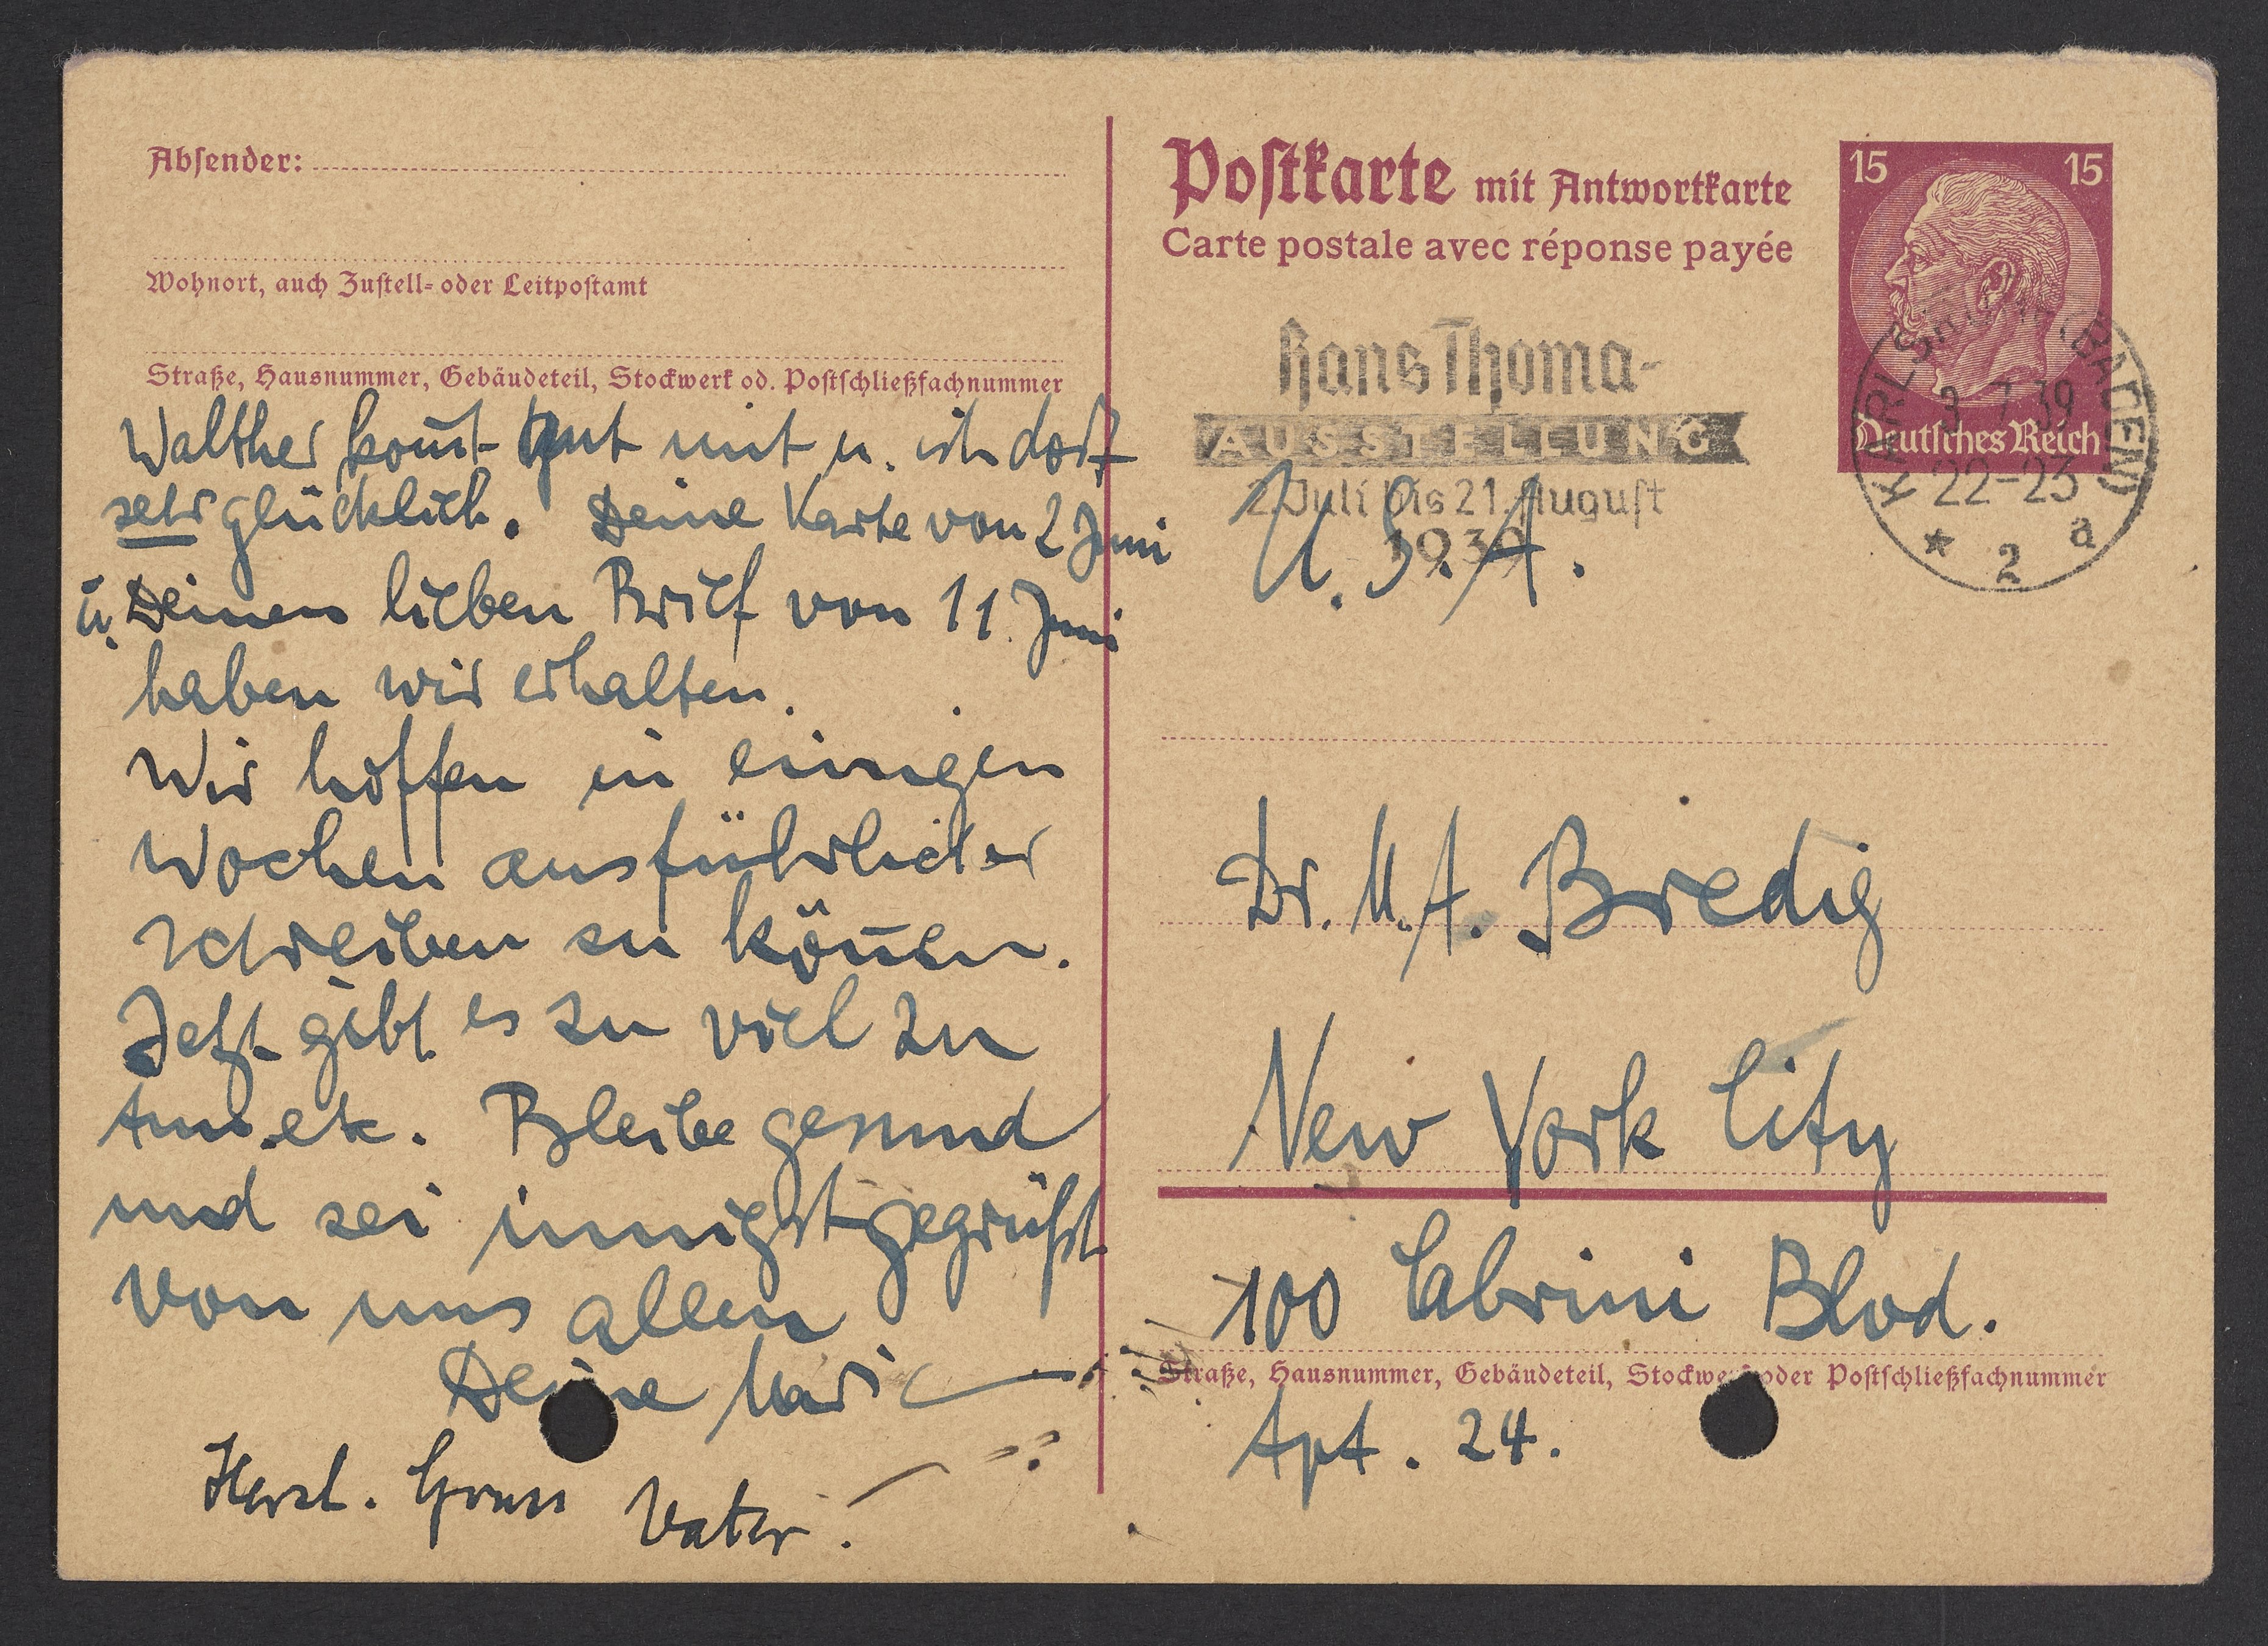 Absender:
Wohnort, auch Zustell- oder Leitpostamt
Straße, Hausnummer, Gebäudeteil, Stockwerk od. Postschließfachnummer
Walther kom̄t gut mit u. ist dort
sehr glücklich. Deine Karte von 2 Juni
u. Deinen lieben Brief von 11. Juni
haben wir erhalten.
Wir hoffen in einigen
Wochen ausführlicher
schreiben zu kön̄en.
Jetzt gibt es zu viel zu
tun. etc. Bleibe gesund
und sei innigst gegrüßt
von uns allen
Deine Mari
Herzl. Gruss Vater.
Postkarte mit Antwortkarte
Carte postale avec réponse payée
15 15
Deutsches Reich
Hans Thoma-
AUSSTELLUNG
2. Juli bis 21. August
1939
KARLSRUHE (BADEN)
3.7.39
22-23
* 2 a
U.S.A.
Dr. M.A. Bredig
New York City
100 Cabrini Blvd.
Straße, Hausnummer, Gebäudeteil, Stockwerk oder Postschließfachnummer
Apt. 24.